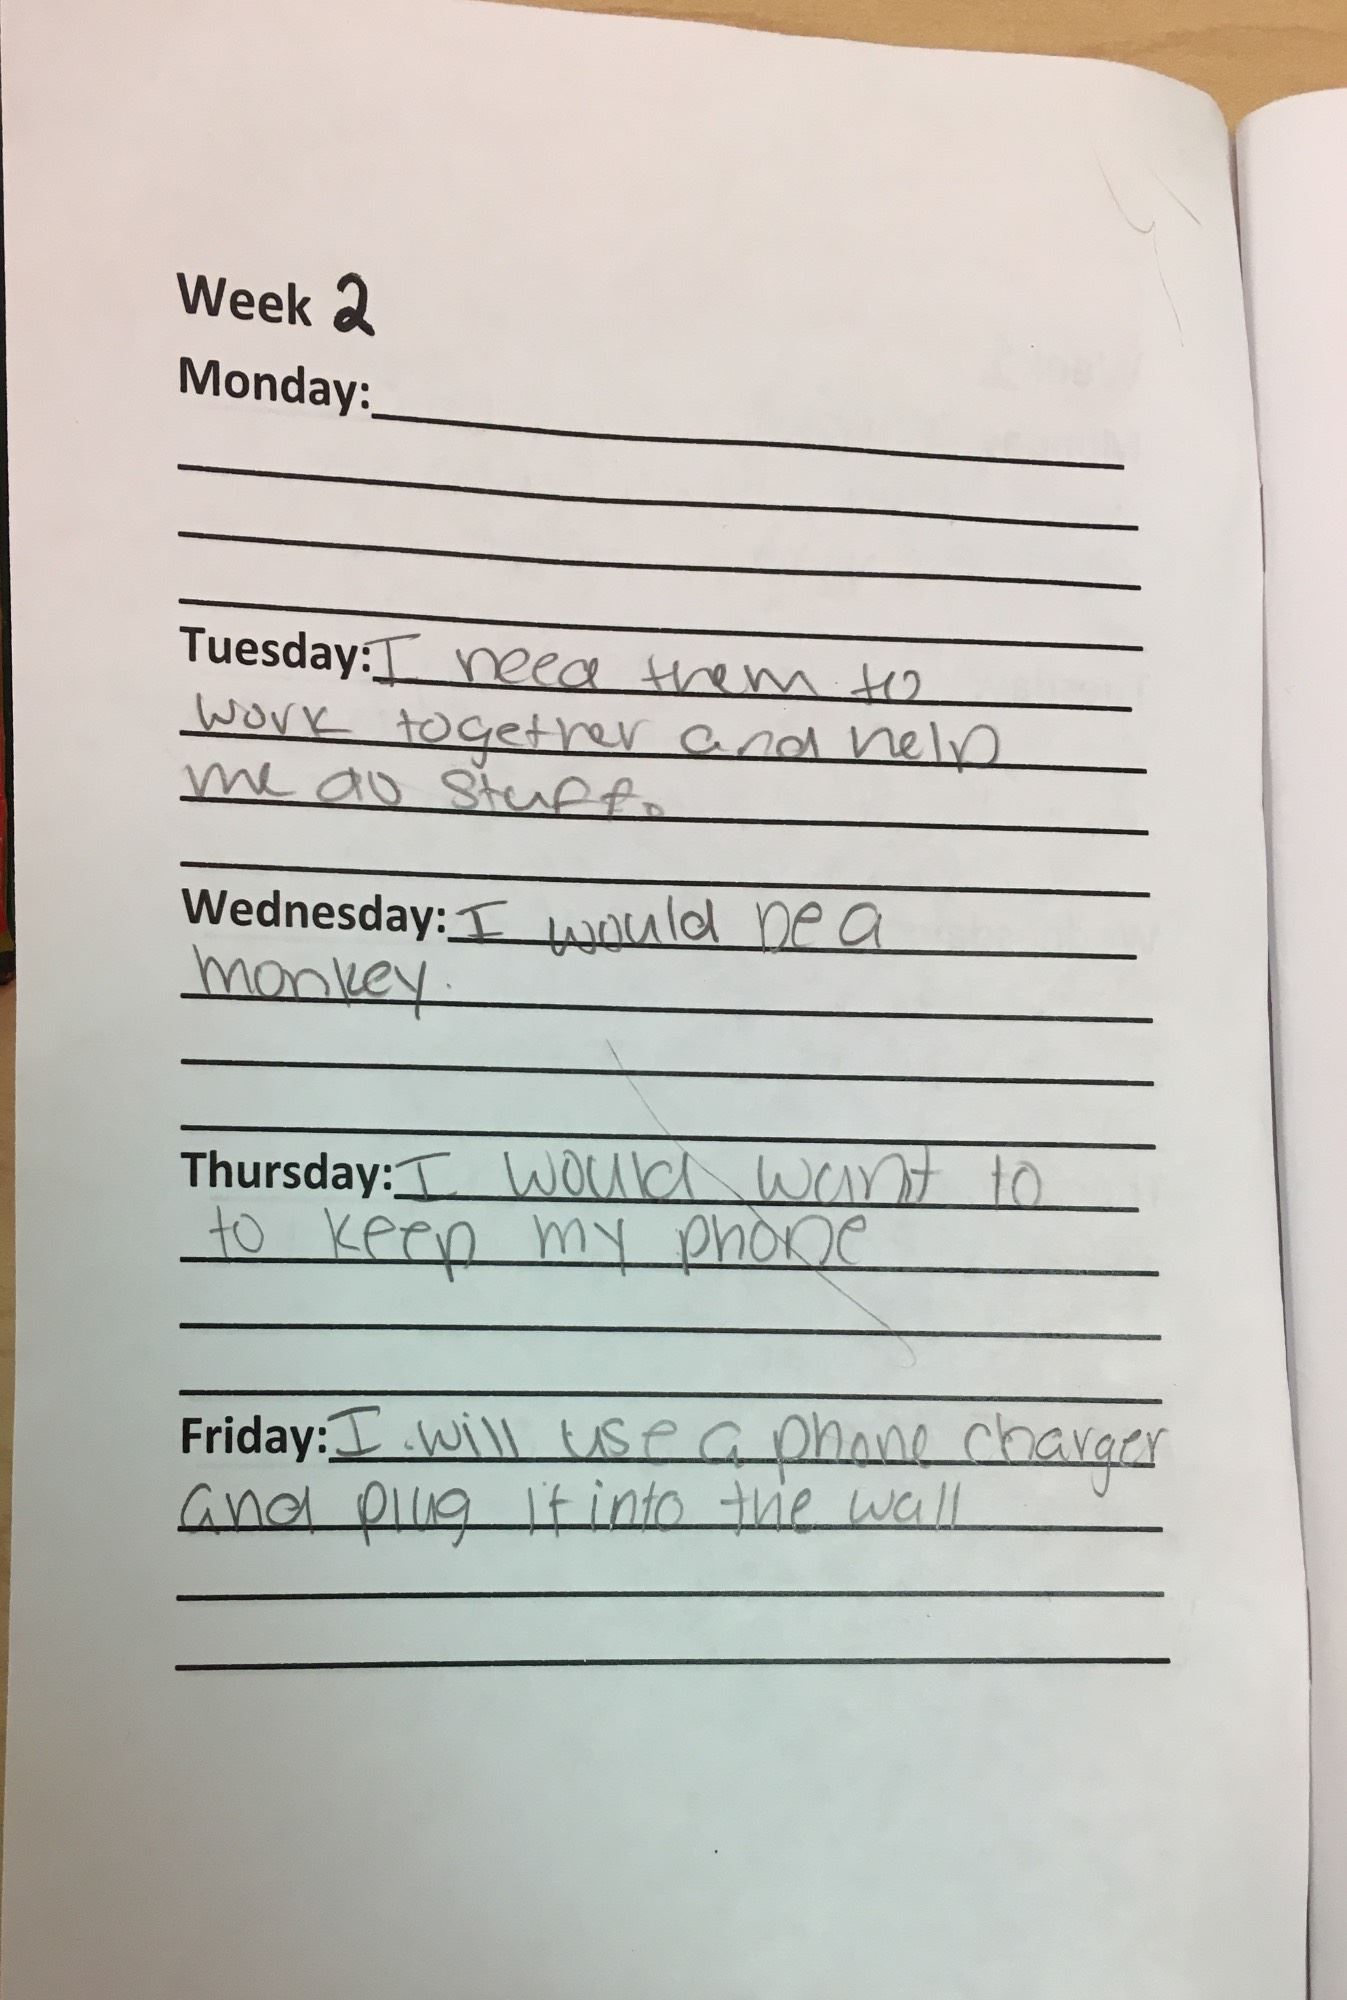 Week 2
Monday:
Tuesday: I need them to
work together and help
me do stuff.
Wednesday: I would be a
monkey.
Thursday: I would want to
to keep my phone
Friday: I will use a phone charger
and plug it into the wall